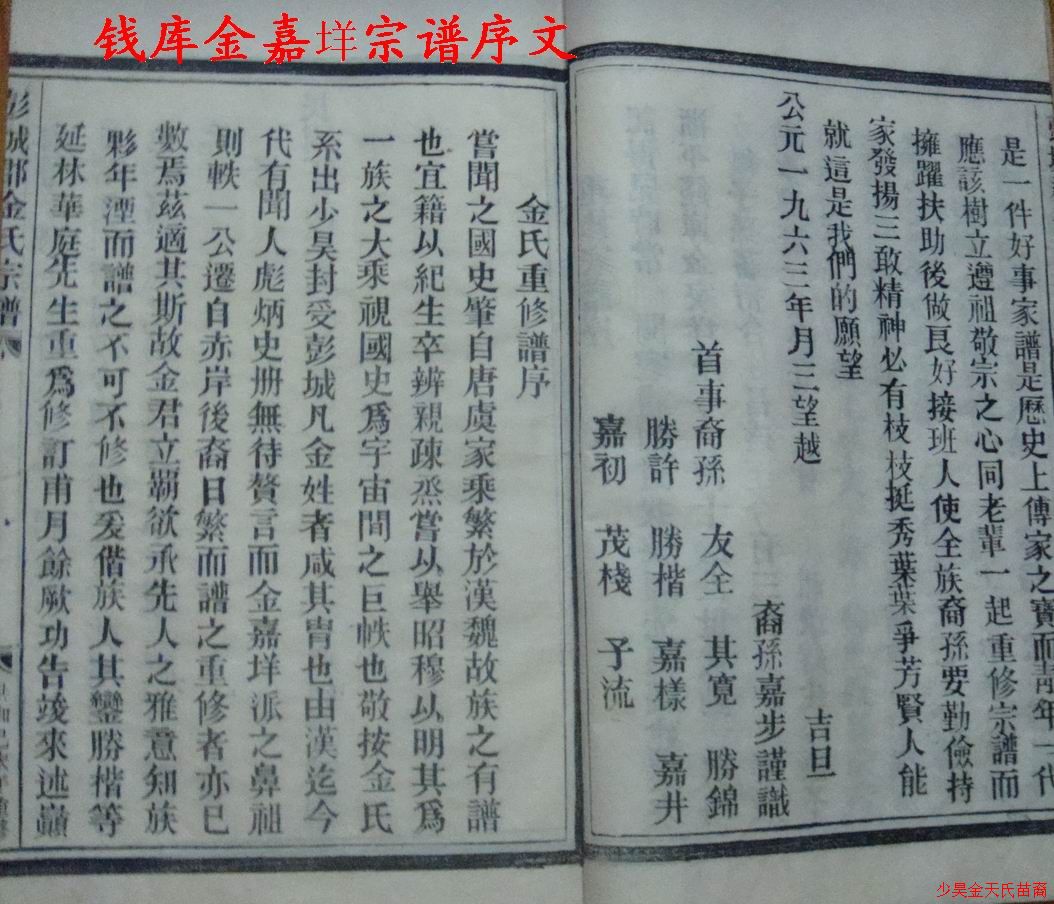 钱库金嘉垟宗谱序文
是一件好事家譜是歷史上傳家之寶而青年一代
應該樹立遵祖敬宗之心同老輩一起重修宗譜而
擁躍扶助後做良好接班人使全族裔孫要勤儉持
家發揚三敢精神必有枝枝挺秀葉葉爭芳賢人能
就這是我們的願望
公元一九六三年月三望越
吉旦
裔孫嘉步謹識
首事裔孫 友全 其寬 勝錦
勝許 勝楷 嘉樣 嘉井
嘉初 茂棧 予流
金氏重修譜序
嘗聞之國史肇自唐虞家乘繁於漢魏故族之有譜
也宜籍以紀生卒辨親疎烝嘗以舉昭穆以明其爲
一族之大乘視國史爲宇宙間之巨帙也敬按金氏
系出少昊封受彭城凡金姓者咸其冑也由漢迄今
代有聞人彪炳史册無待贅言而金嘉垟派之鼻祖
則軼一公遷自赤岸後裔日繁而譜之重修者亦已
數焉茲適其斯故金君立霸欲承先人之雅意知族
夥年湮而譜之不可不修也爰偕族人其鑾勝楷等
延林華庭先生重爲修訂甫月餘厥功告竣來述巔
彭城郡金氏宗譜
少昊金天氏苗裔